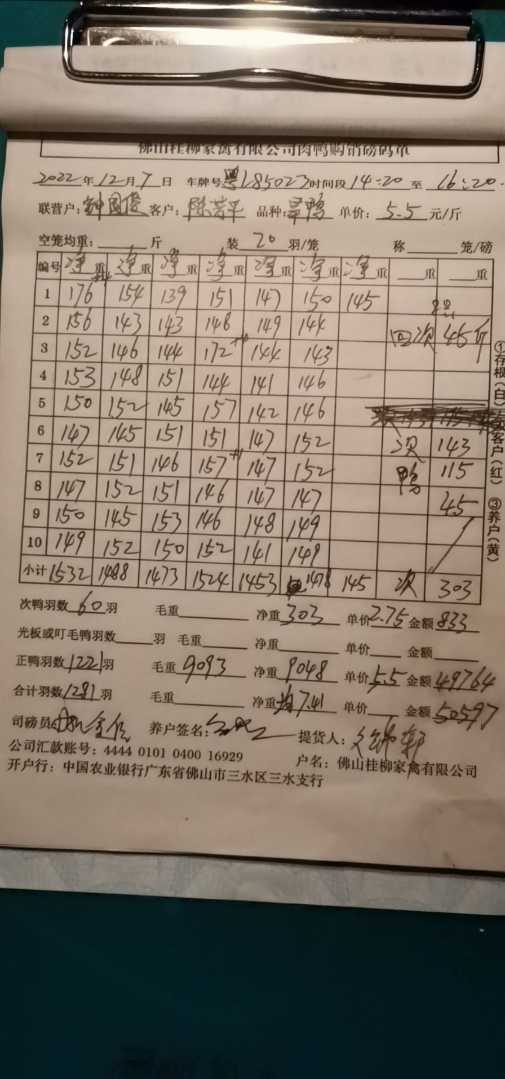 佛山桂柳家禽有限公司肉鸭购销磅码单
2022年12月7日 车牌号粤L85023时间段14:20至16:20
联营户: 客户:陈芳平 品种:旱鸭 单价:5.5元/斤
空笼均重:____斤 装20羽/笼 称____笼/磅
编号 净重 净重 净重 净重 净重 净重 净重 重 重
1 176 154 139 151 147 150 145
2 156 143 143 148 149 144 回次 45斤
3 152 146 144 172 144 143
4 153 148 151 144 141 146
5 150 152 145 157 142 146
6 147 145 151 151 147 152 次 143
7 152 151 146 157 147 152 鸭 115
8 147 152 151 146 147 147 45
9 150 145 153 146 148 149
10 149 152 150 152 141 149
小计 1532 1488 1473 1524 1453 1478 145 次 303
次鸭羽数60羽 毛重____ 净重303 单价2.75金额833
光板或叮毛鸭羽数____羽 毛重____ 净重____ 单价____金额____
正鸭羽数1221羽 毛重9093 净重9048 单价5.5金额49764
合计羽数1281羽 毛重____ 净重均7.41 单价____金额50597
司磅员: 养户签名: 提货人:
公司汇款账号:4444 0101 0400 16929 户名:佛山桂柳家禽有限公司
开户行:中国农业银行广东省佛山市三水区三水支行
①存根(白)
客户(红)
③养户(黄)